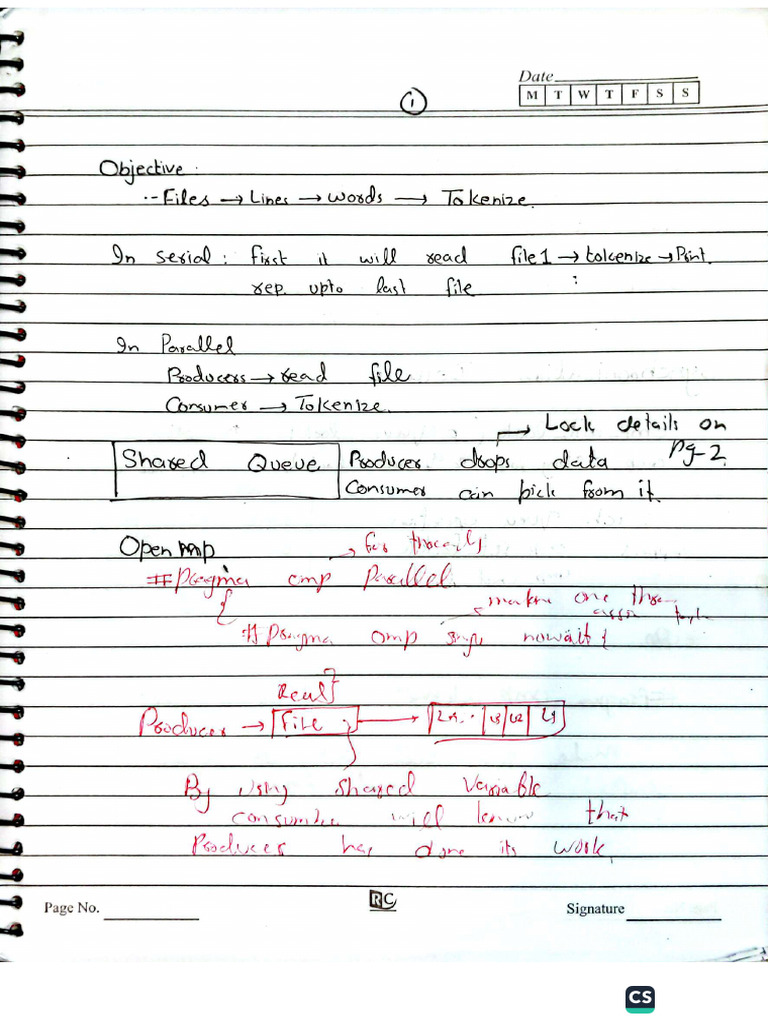 Date
1
M T W T F S S
Objective :
Files → Lines → words → Tokenize.
In serial : first it will read file 1 → tokenize → Print.
rep. upto last file :
In Parallel
Producers → read file
Consumer → Tokenize.
→ Lock details on pg-2
Shared Queue Producer drops data
Consumer can pick from it.
Open mp → for threads
#Pragma omp Parallel
{ making one
#Pragma omp single nowait {
Read }
Producer → File → Ln . . L3 L2 L1
By using shared variable
consumer will know that
Producer has done its work.
Page No. RC Signature
CS